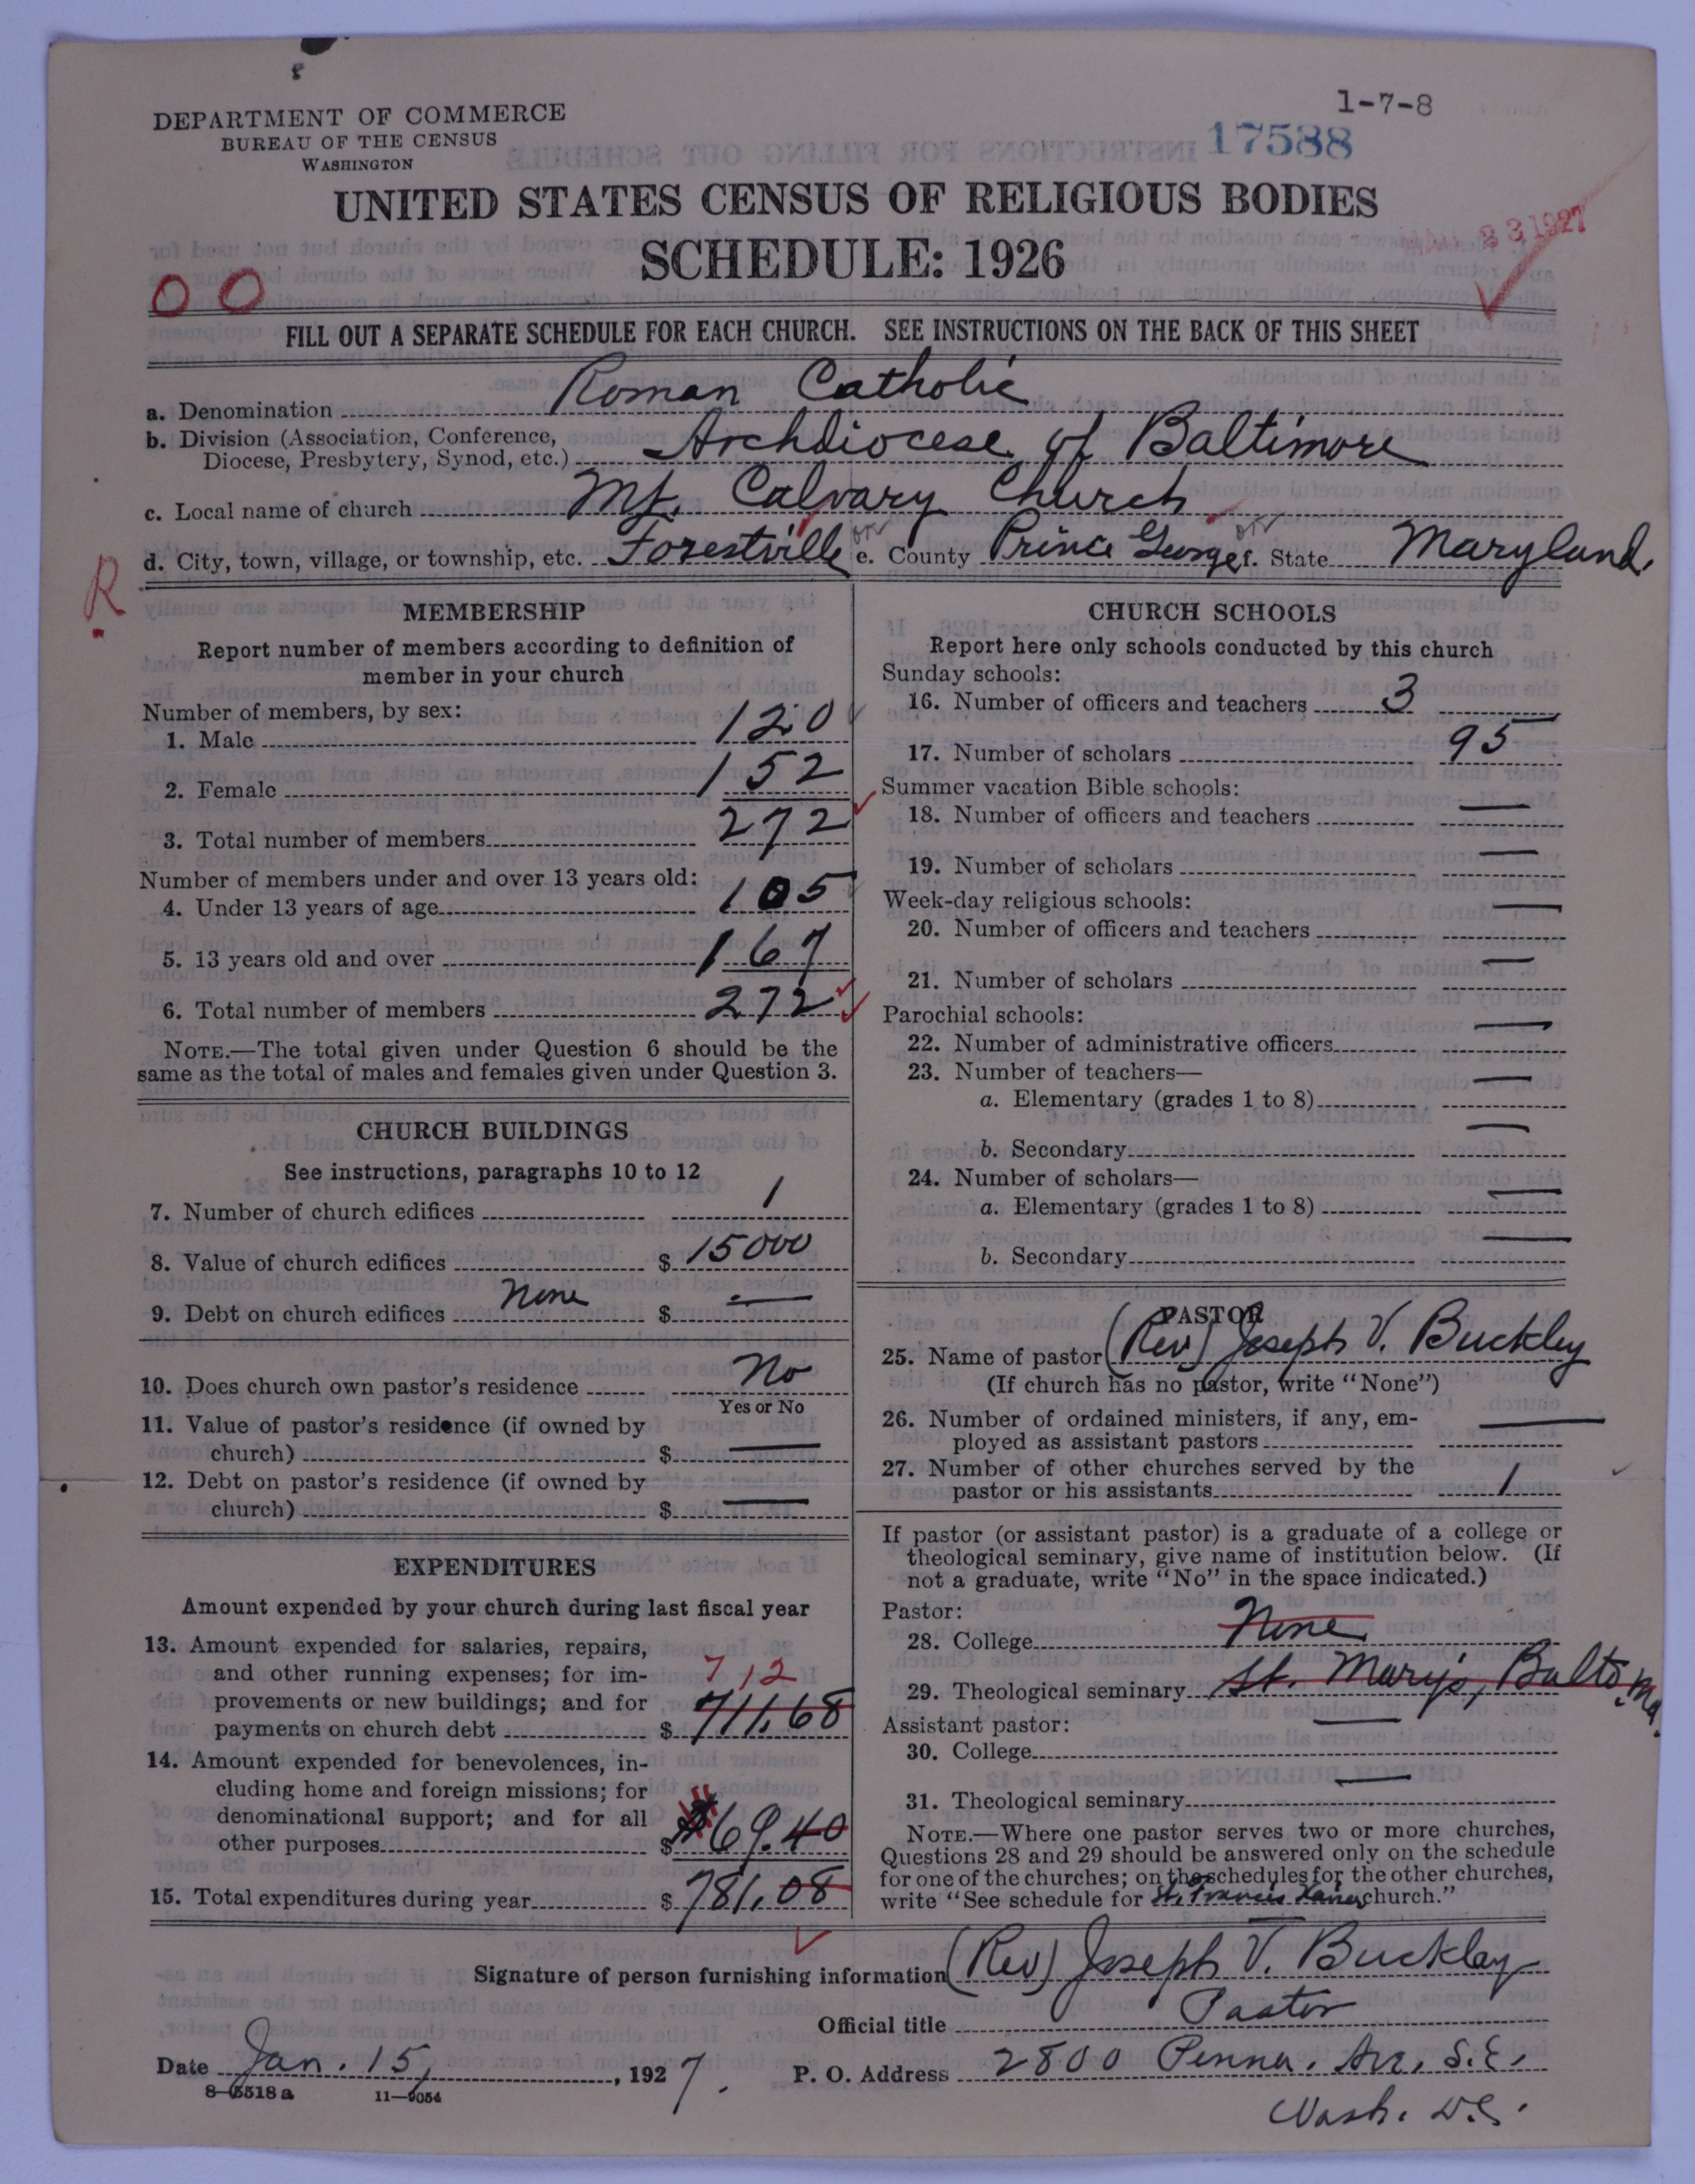 1-7-8
DEPARTMENT OF COMMERCE
BUREAU OF THE CENSUS
WASHINGTON
17588
UNITED STATES CENSUS OF RELIGIOUS BODIES
SCHEDULE: 1926
23 1927
0 0
FILL OUT A SEPARATE SCHEDULE FOR EACH CHURCH. SEE INSTRUCTIONS ON THE BACK OF THIS SHEET
a. Denomination Roman Catholic
b. Division (Association, Conference,
Diocese, Presbytery, Synod, etc.) Archdiocese of Baltimore
c. Local name of church Mt. Calvary Church
d. City, town, village, or township, etc. Forestville e. County Prince George f. State Maryland.
R
MEMBERSHIP
Report number of members according to definition of
member in your church
Number of members, by sex:
1. Male 120
2. Female 152
3. Total number of members 272
Number of members under and over 13 years old:
4. Under 13 years of age 105
5. 13 years old and over 167
6. Total number of members 272
NOTE.—The total given under Question 6 should be the
same as the total of males and females given under Question 3.
CHURCH BUILDINGS
See instructions, paragraphs 10 to 12
7. Number of church edifices 1
8. Value of church edifices $ 15000
9. Debt on church edifices None $ —
10. Does church own pastor's residence No
Yes or No
11. Value of pastor's residence (if owned by
church) $ —
12. Debt on pastor's residence (if owned by
church) $ —
EXPENDITURES
Amount expended by your church during last fiscal year
13. Amount expended for salaries, repairs,
and other running expenses; for im- 712
provements or new buildings; and for
payments on church debt $ 711.68
14. Amount expended for benevolences, in-
cluding home and foreign missions; for
denominational support; and for all
other purposes $ 69.40
15. Total expenditures during year $ 781.08
CHURCH SCHOOLS
Report here only schools conducted by this church
Sunday schools:
16. Number of officers and teachers 3
17. Number of scholars 95
Summer vacation Bible schools:
18. Number of officers and teachers —
19. Number of scholars —
Week-day religious schools:
20. Number of officers and teachers —
21. Number of scholars —
Parochial schools:
22. Number of administrative officers —
23. Number of teachers—
a. Elementary (grades 1 to 8) —
b. Secondary —
24. Number of scholars—
a. Elementary (grades 1 to 8) —
b. Secondary —
PASTOR
25. Name of pastor (Rev) Joseph V. Buckley
(If church has no pastor, write "None")
26. Number of ordained ministers, if any, em-
ployed as assistant pastors —
27. Number of other churches served by the
pastor or his assistants 1
If pastor (or assistant pastor) is a graduate of a college or
theological seminary, give name of institution below. (If
not a graduate, write "No" in the space indicated.)
Pastor:
28. College None
29. Theological seminary St. Mary's, Balto Md.
Assistant pastor:
30. College —
31. Theological seminary —
NOTE.—Where one pastor serves two or more churches,
Questions 28 and 29 should be answered only on the schedule
for one of the churches; on the schedules for the other churches,
write "See schedule for St. Francis Xavier church."
Signature of person furnishing information (Rev) Joseph V. Buckley
Official title Pastor
Date Jan. 15, 1927. P. O. Address 2800 Penna. Ave. S.E.
8-5518a 11-9054
Wash. D.C.